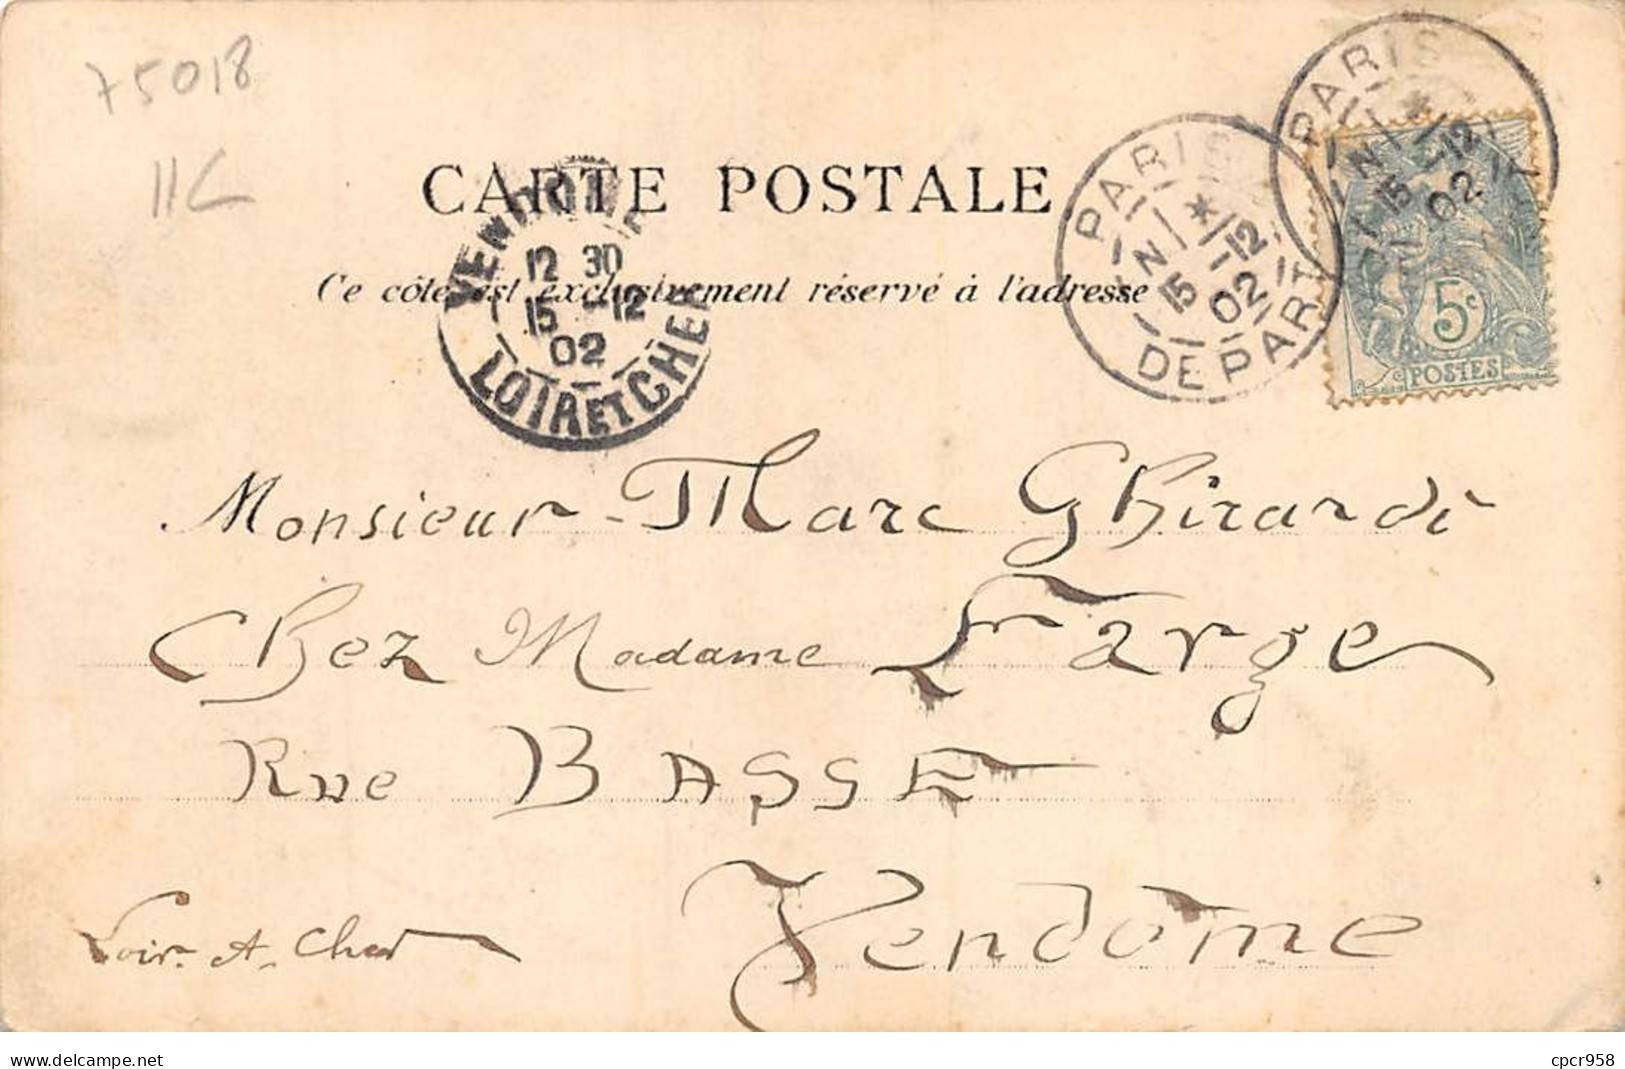 75018
11C
CARTE POSTALE
Ce côté est exclusivement réservé à l'adresse
VENDOME
12 30
15 -12
02
LOIR ET CHER
PARIS
15 -12
02
DEPART
PARIS
15 -12
02
5c
POSTES
Monsieur Marc Ghirardi
Chez Madame Farge
Rue BASSE
Vendôme
Loir. et. Cher
delcampe.net
cpcr958